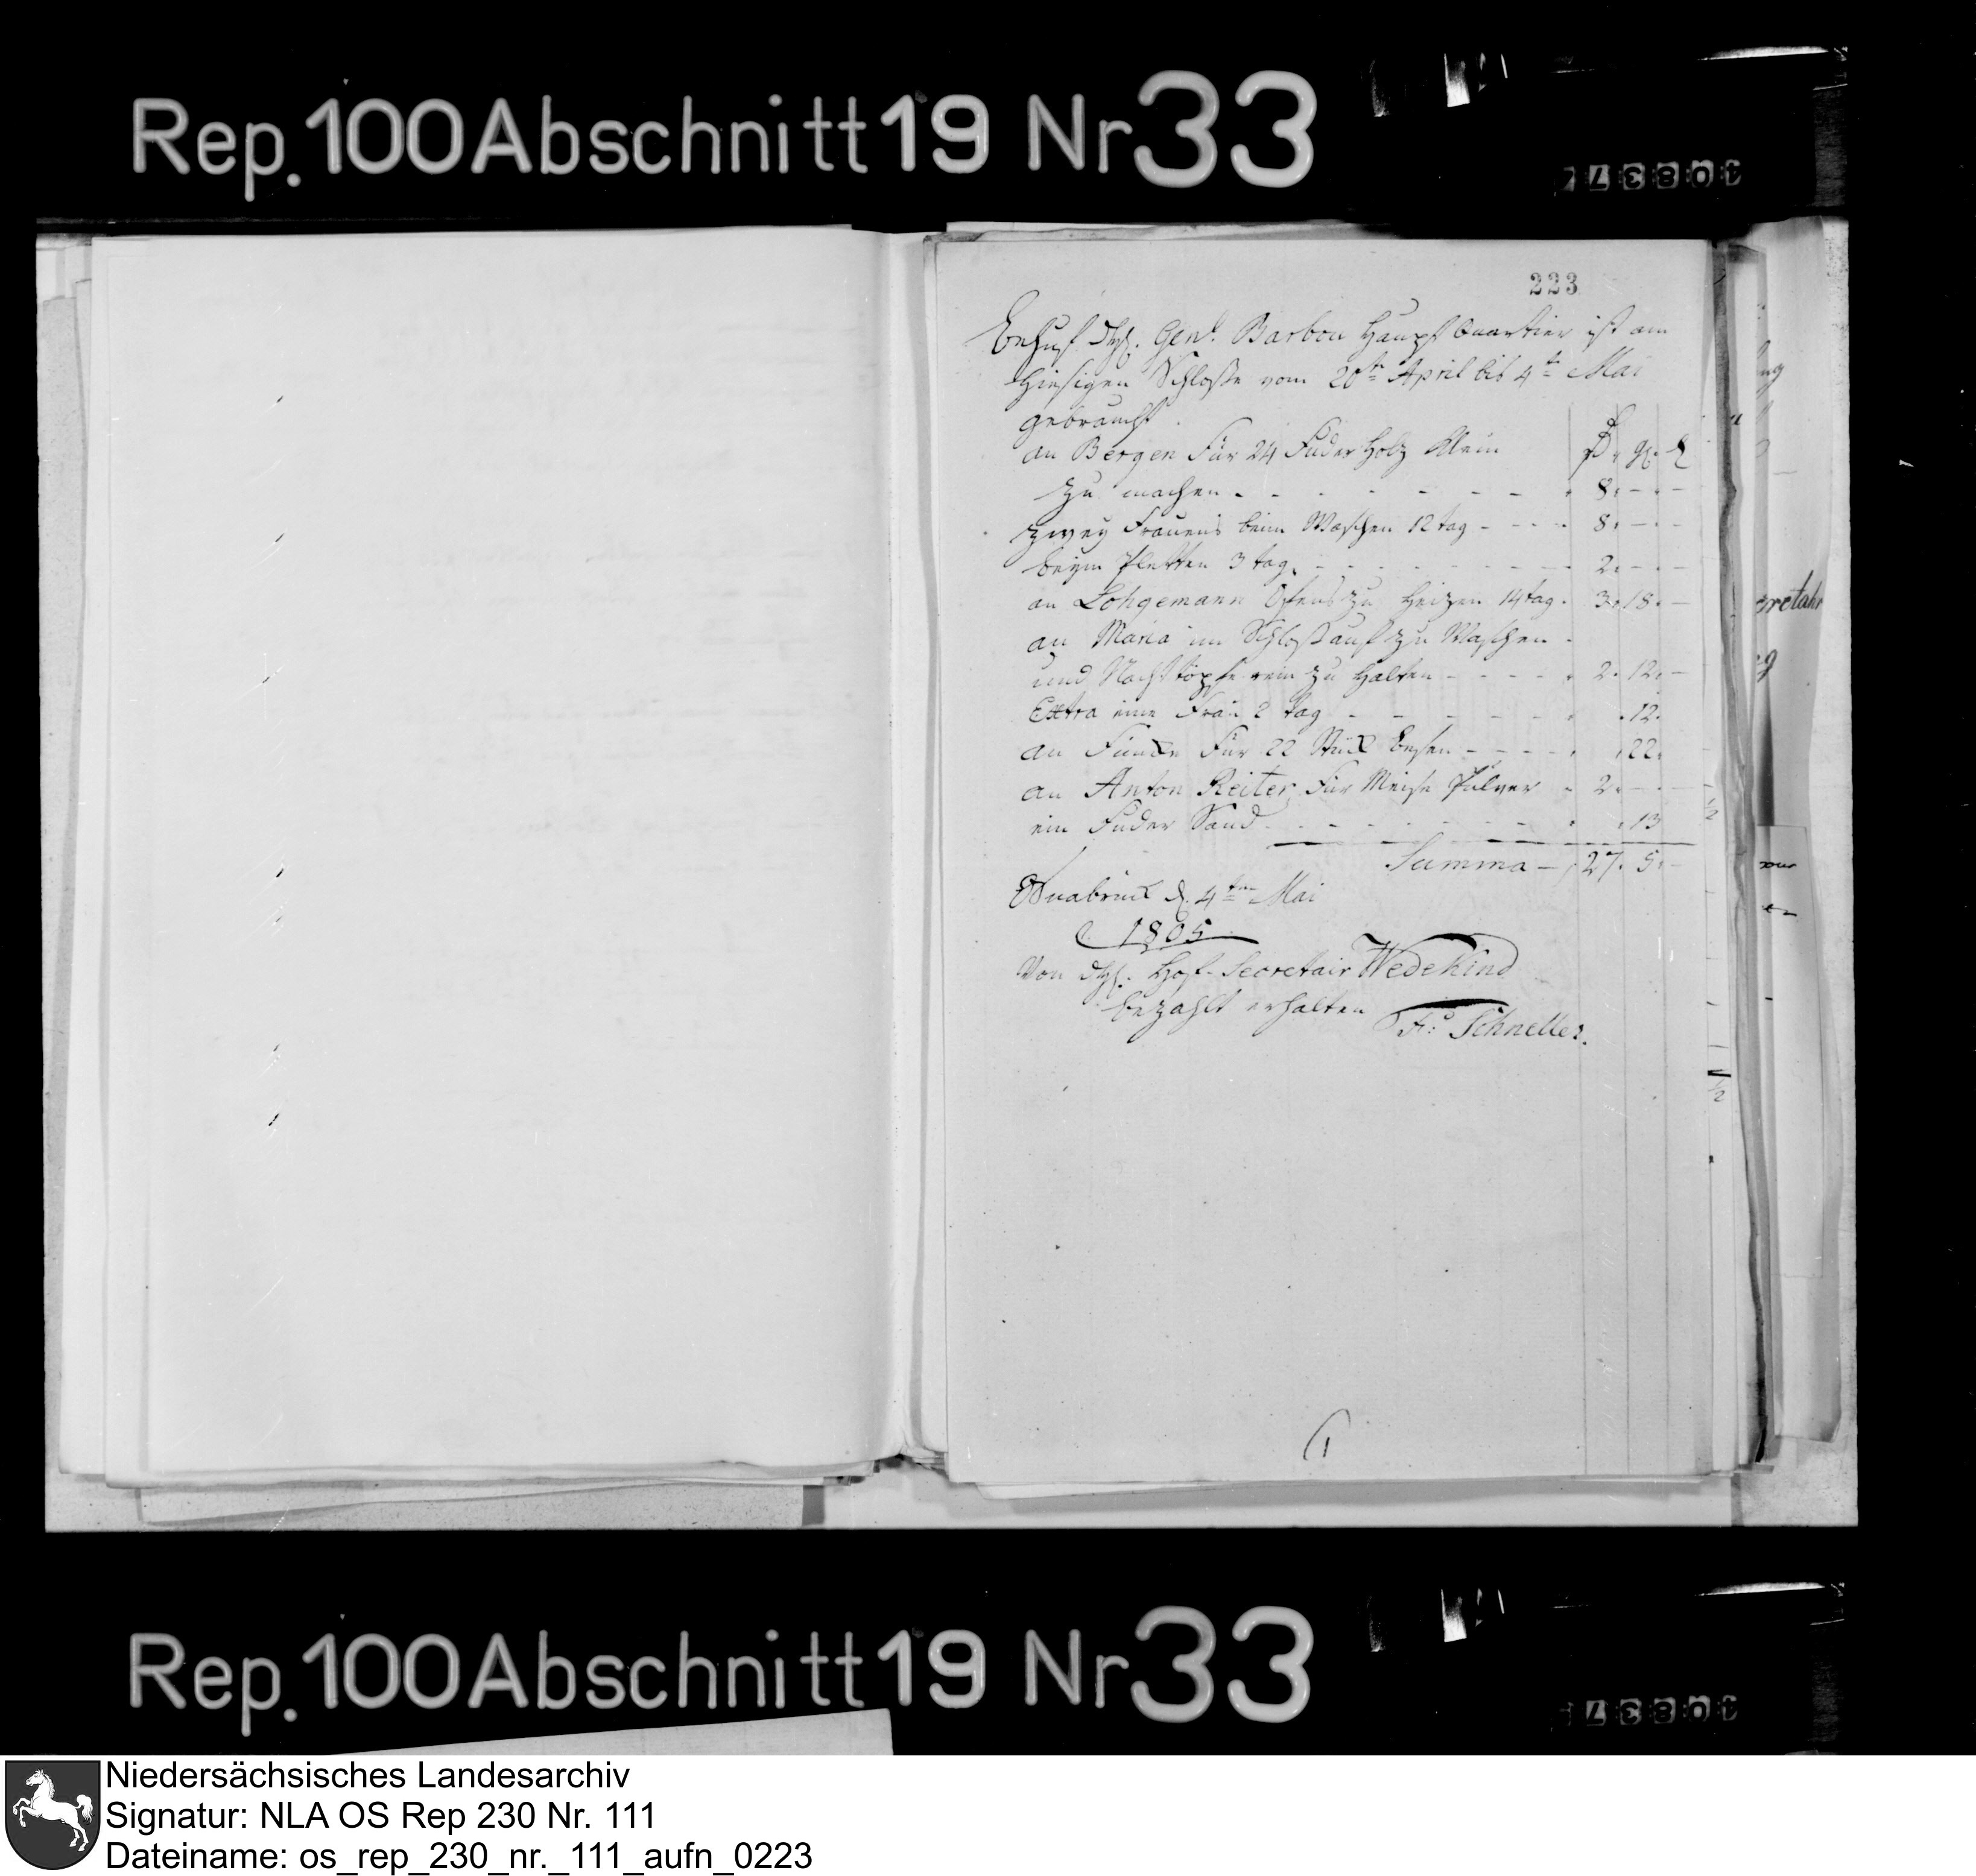 Rep. 100 Abschnitt 19 Nr 33
223
Behuf Gen. Barbou Haupt Quartier ist am
hiesigen Schloße vom 20tn April bis 4tn Mai
gebraucht.
an Bergen Für 24 Fuder Holz Klein
zu machen - - - - - - - 8. - . -
zwey Frauens beim Waschen 12 tag - - - - 8. - . -
beym Pletten 3 tag. - - - - - - - 2. - . -
an Lohgemann Ofens zu Heizen 14 tag. 3. 18. -
an Maria im Schloß auf zu Waschen -
und Nachttöpfe rein zu Halten - - - - 2. 12. -
Extra eine Frau 2 tag - - - - - - . 12.
an Funke Für 22 Stük besen - - - - . 22.
an Anton Reiter Für Meise Pulver - 2. - . -
ein Fuder Sand - - - - - - . 13
Summa - 27. 5. -
Osnabruk d. 4ten Mai
1805
Von Hof-Secretair Wedekind
bezahlt erhalten Fr: Schneller.
Rep. 100 Abschnitt 19 Nr 33
Niedersächsisches Landesarchiv
Signatur: NLA OS Rep 230 Nr. 111
Dateiname: os_rep_230_nr._111_aufn_0223